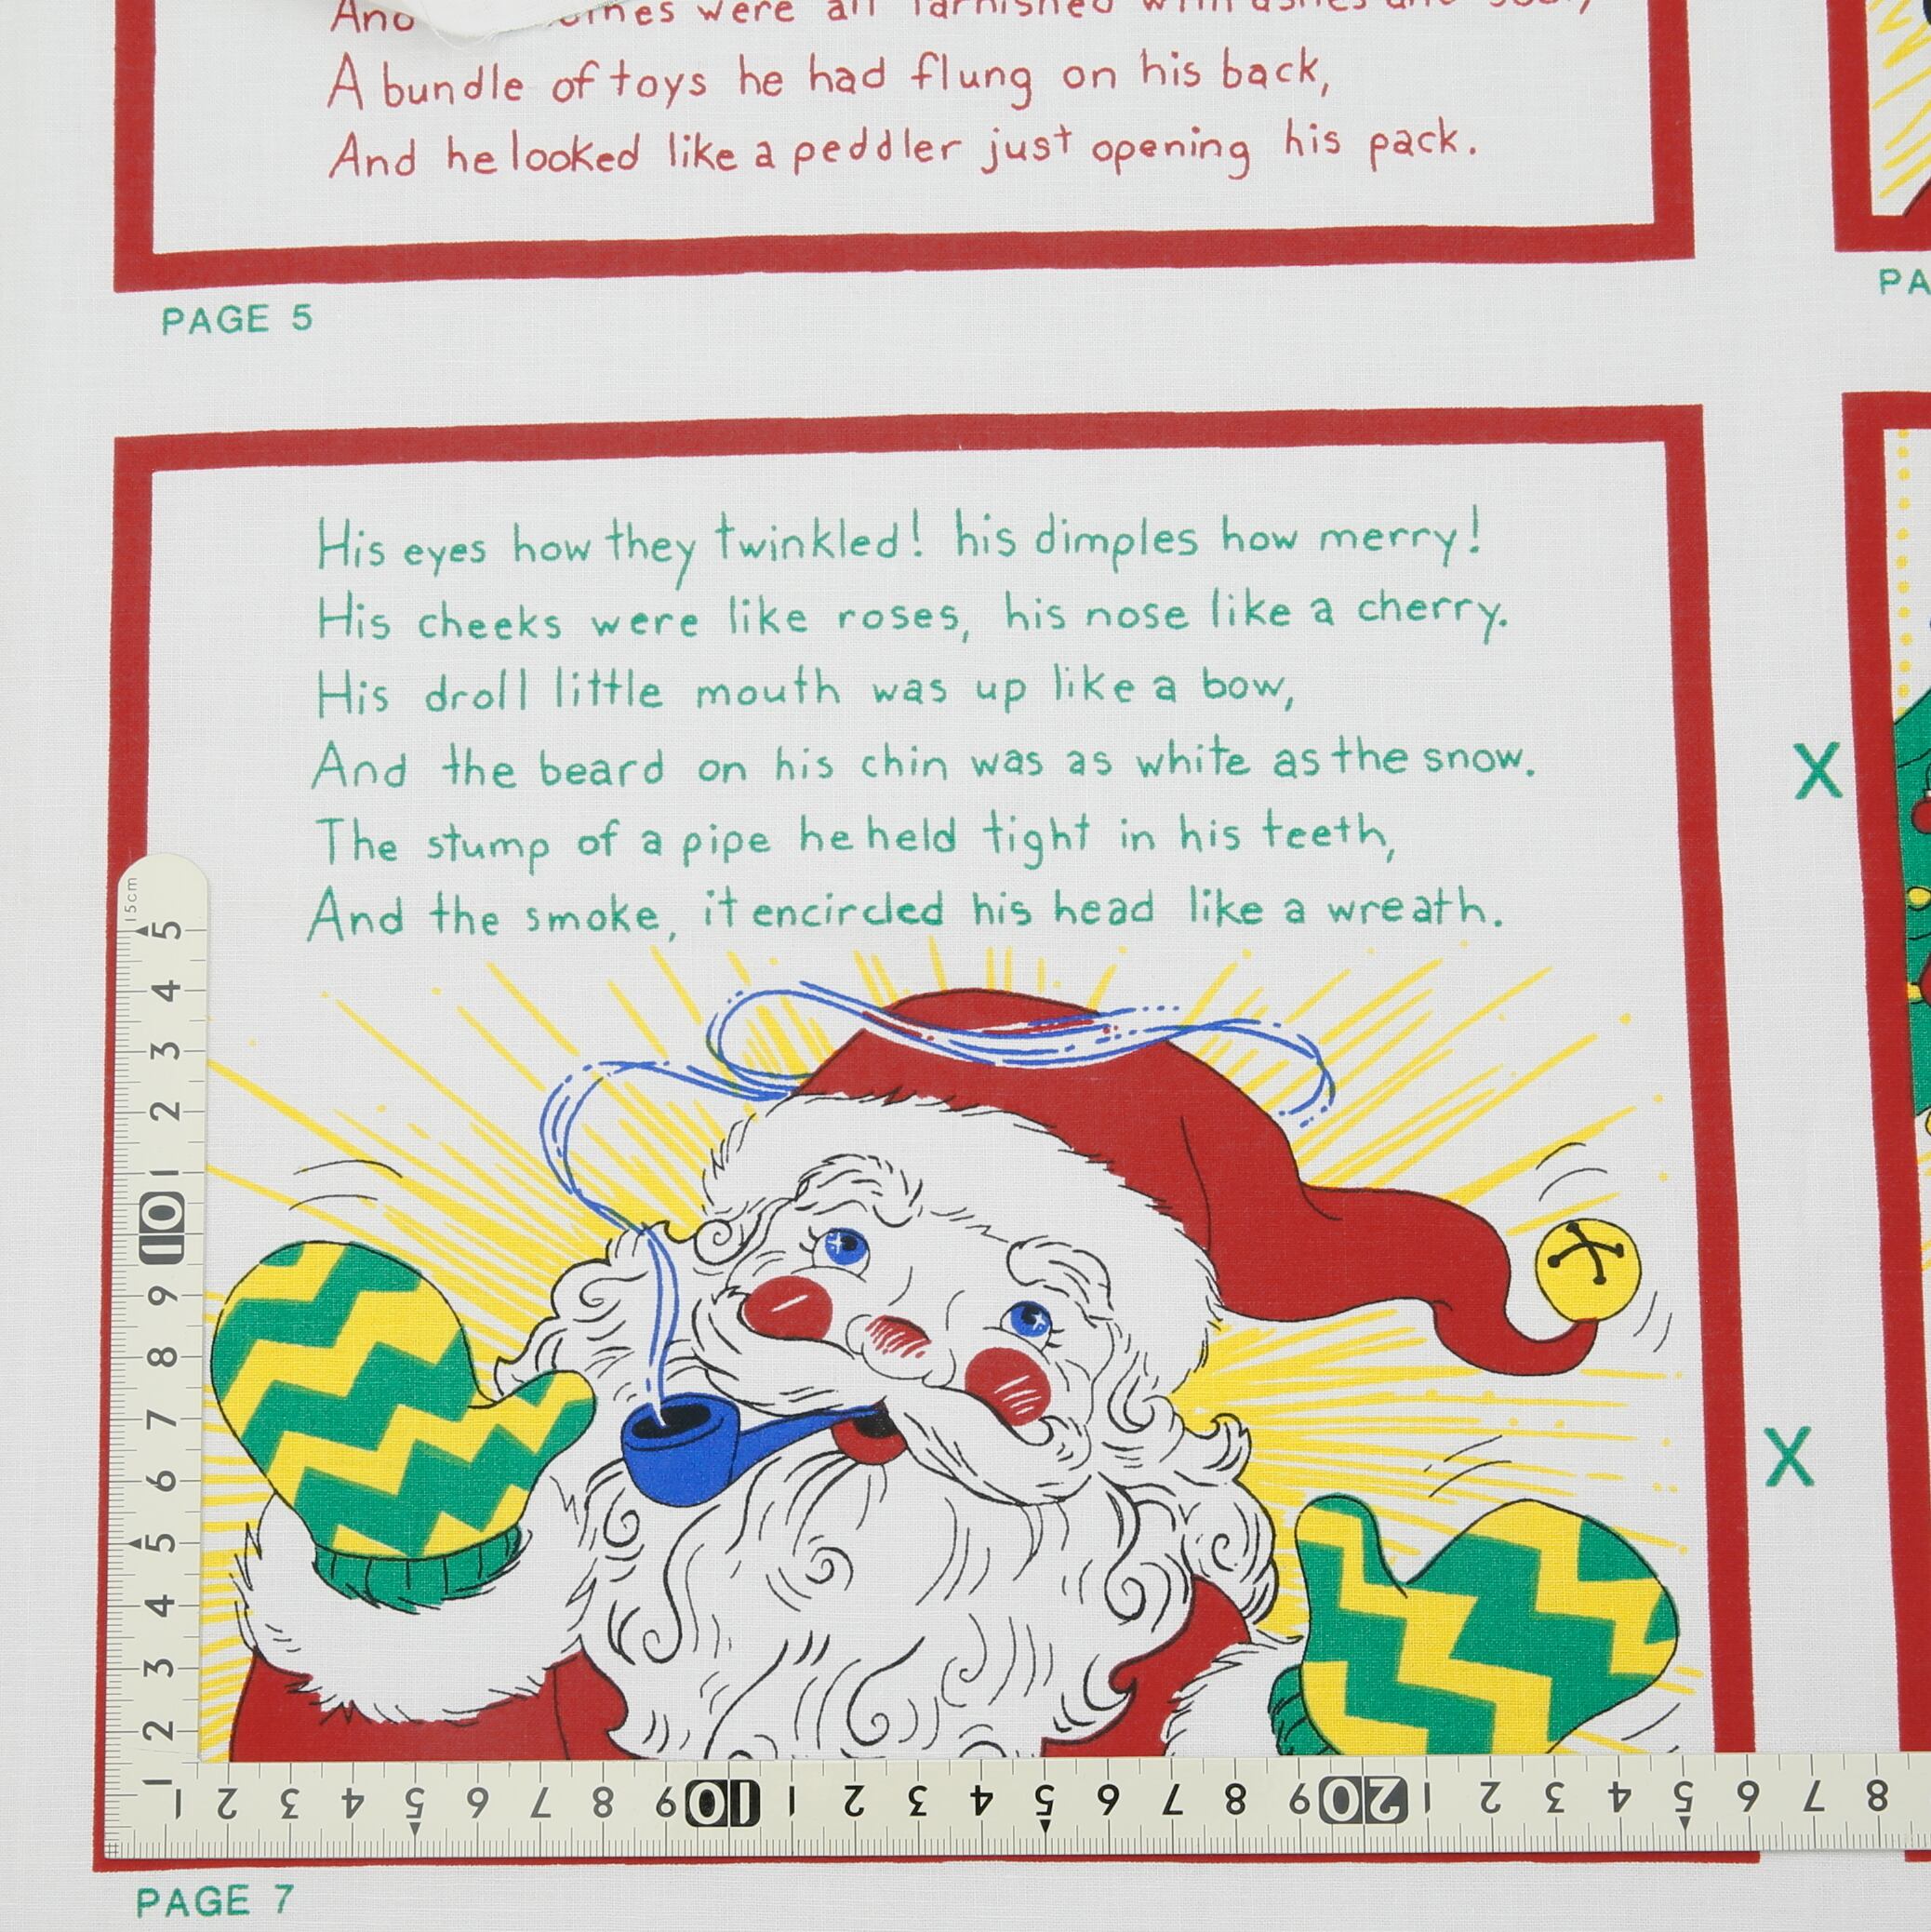 And were all tarnished with ashes and
A bundle of toys he had flung on his back,
And he looked like a peddler just opening his pack.
PAGE 5
PA
His eyes how they twinkled! his dimples how merry!
His cheeks were like roses, his nose like a cherry.
His droll little mouth was up like a bow,
And the beard on his chin was as white as the snow.
X
The stump of a pipe he held tight in his teeth,
And the smoke, it encircled his head like a wreath.
X
15cm
5
4
3
2
1
10
9
8
7
6
5
4
3
2
1
1 2 3 4 5 6 7 8 9 10 1 2 3 4 5 6 7 8 9 20 1 2 3 4 5 6 7 8
PAGE 7